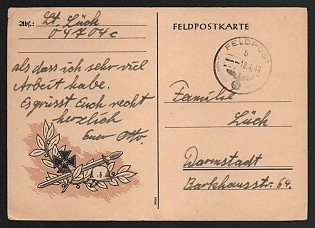 Abs.: Lt. Lück
04704c
als dass ich sehr viel
Arbeit habe.
Es grüsst Euch recht
herzlich
Euer Otto.
FELDPOSTKARTE
FELDPOST
b
Familie
Lück
Darmstadt
Barkhausstr. 64.